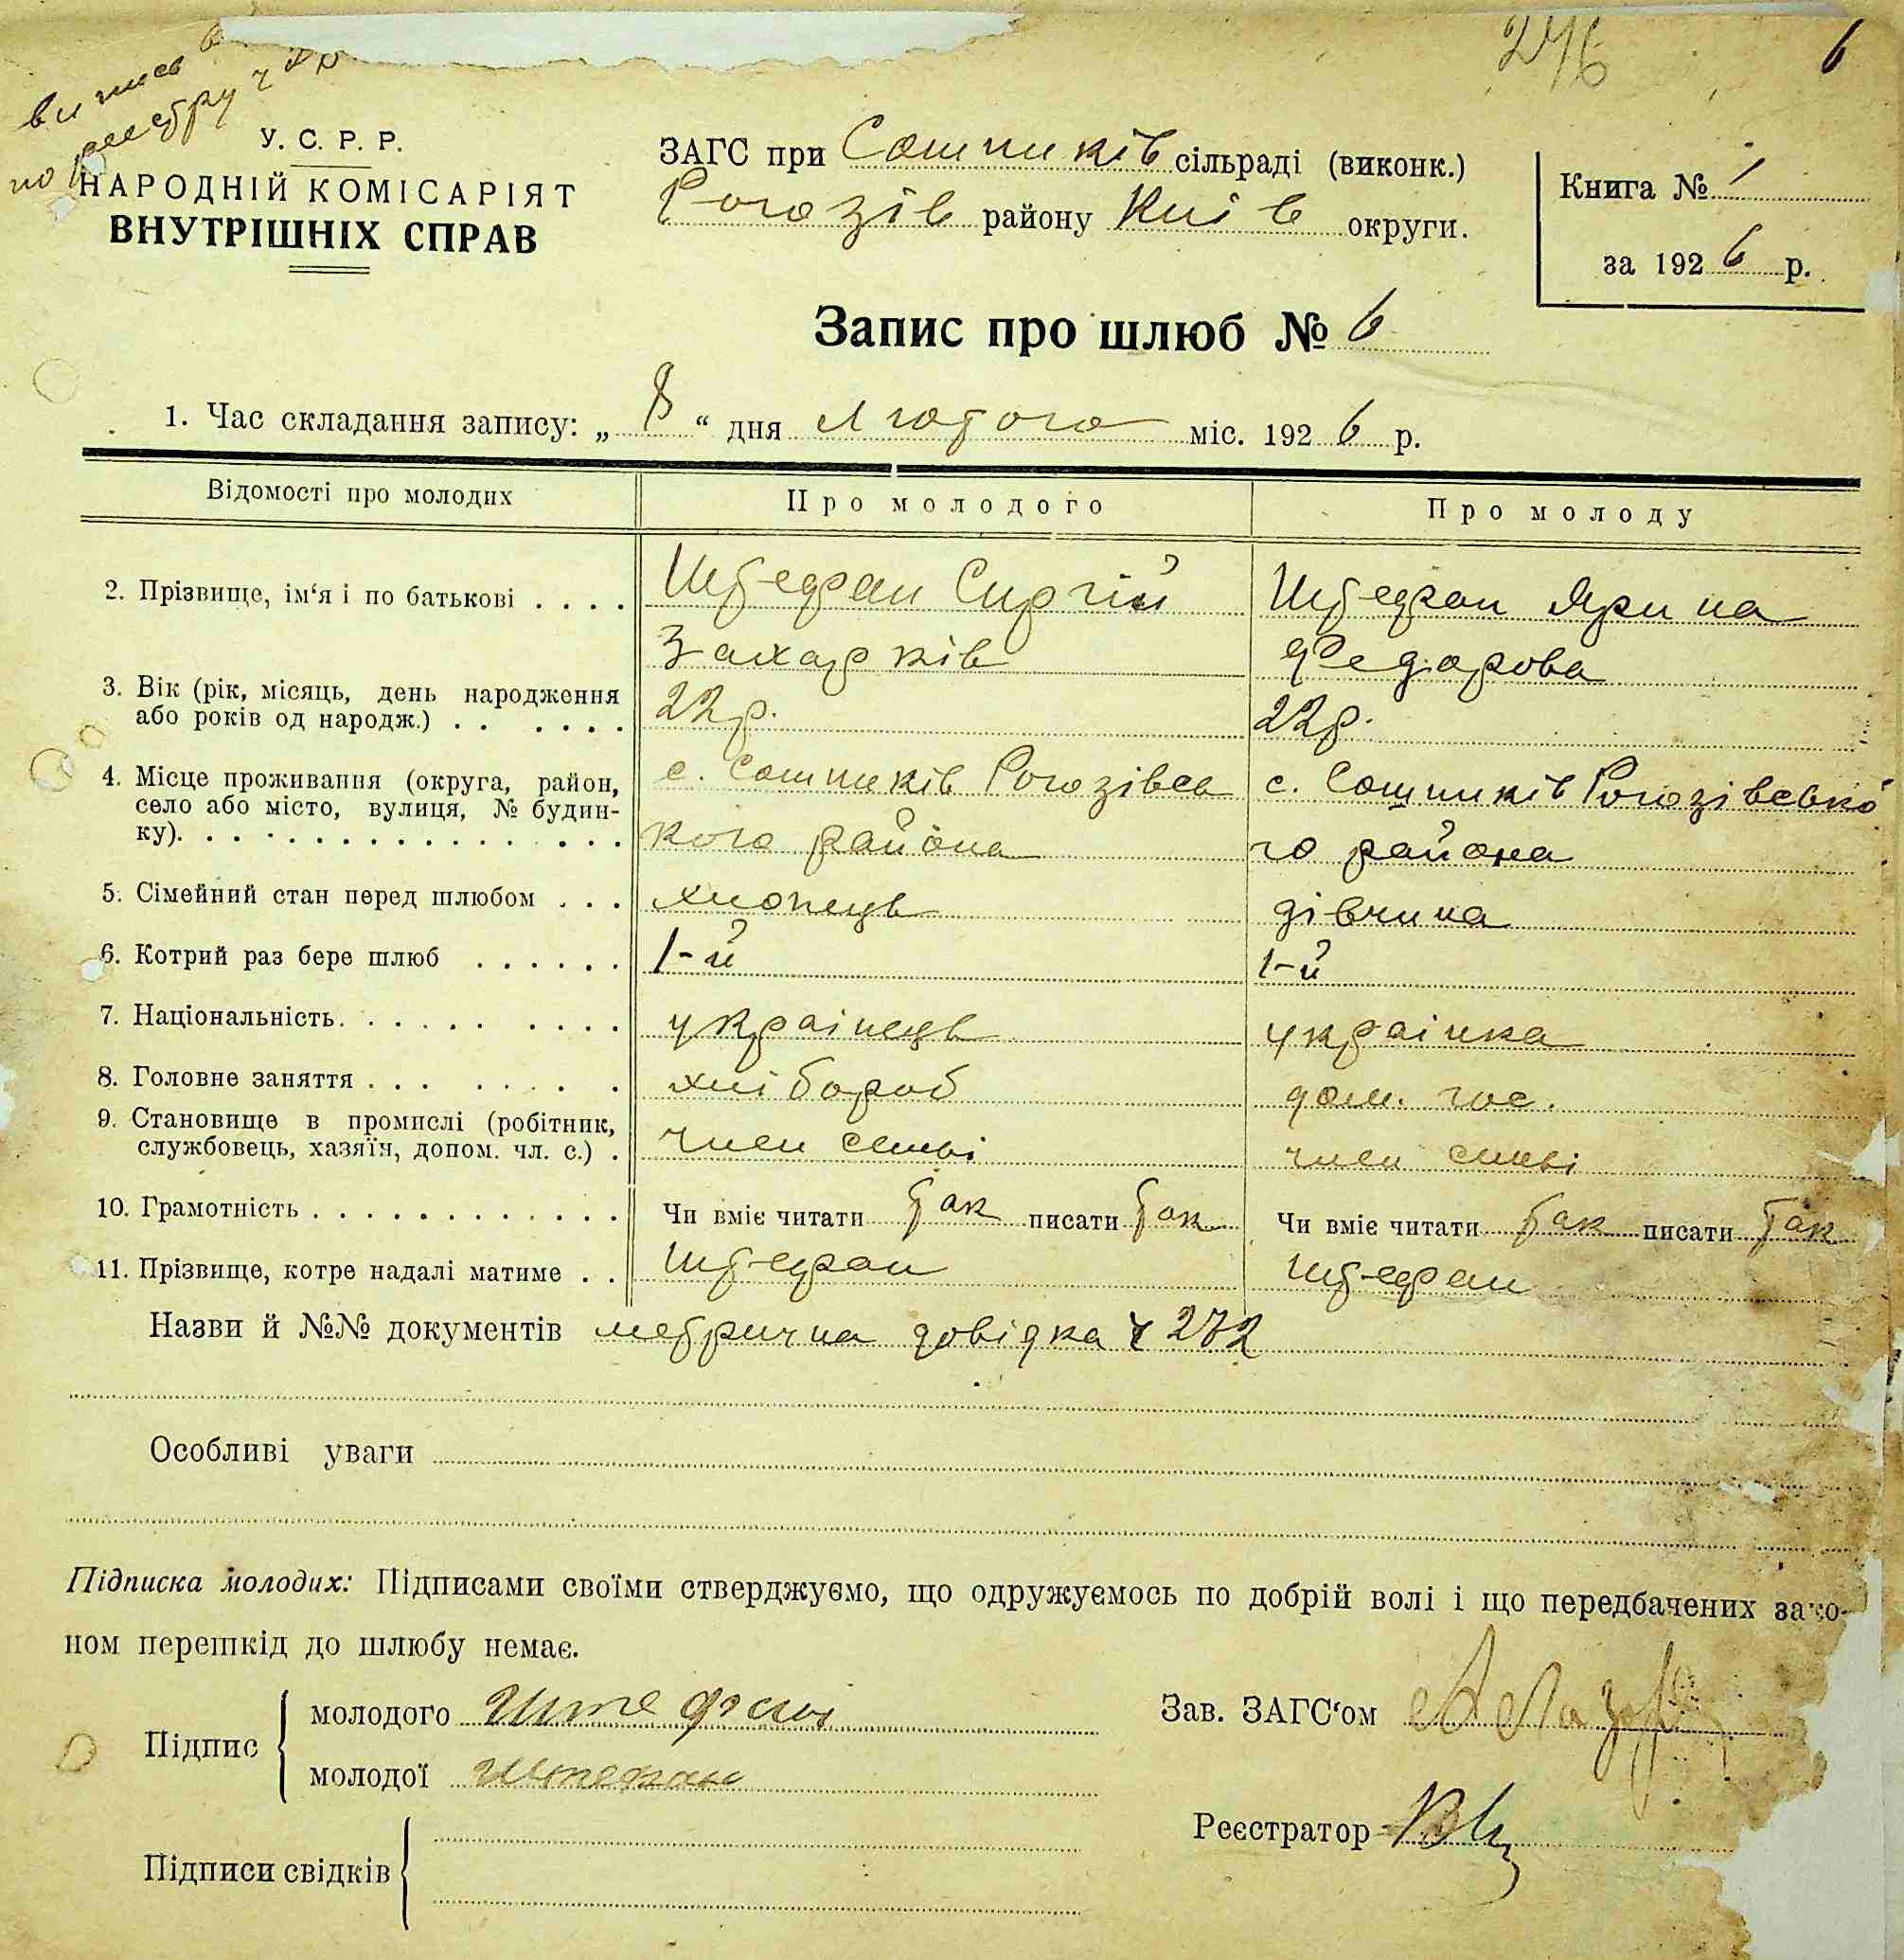 276
6
випись в
по реєстру ч
У. С. Р. Р.
НАРОДНІЙ КОМІСАРІЯТ
ВНУТРІШНІХ СПРАВ
ЗАГС при Сошників сільраді (виконк.)
Рогозів району Київ округи.
Книга № 1
за 1926 р.
Запис про шлюб № 6
1. Час складання запису: „ 8 “ дня лютого міс. 1926 р.
Відомості про молодих
Про молодого
Про молоду
2. Прізвище, ім‘я і по батькові . . . .
Штефан Сиргій
Захарків
Штефан Ярина
Федорова
3. Вік (рік, місяць, день народження
або років од народж.) . . . . . .
22 р.
22 р.
4. Місце проживання (округа, район,
село або місто, вулиця, № будин-
ку). . . . . . . . . . . . . . .
с. Сошників Рогозівсь
кого района
с. Сошників Рогозівсько
го района
5. Сімейний стан перед шлюбом . . .
хлопець
дівчина
6. Котрий раз бере шлюб . . . . . .
1-й
1-й
7. Національність. . . . . . . . . .
українець
українка
8. Головне заняття . . . . . . . .
хлібороб
дом. гос.
9. Становище в промислі (робітник,
службовець, хазяїн, допом. чл. с.) .
член семьі
член семьі
10. Грамотність . . . . . . . . . . . .
Чи вміє читати так писати так
Чи вміє читати так писати так
11. Прізвище, котре надалі матиме . .
Штефан
Штефан
Назви й №№ документів метрична довідка ч 272
Особливі уваги
Підписка молодих: Підписами своїми стверджуємо, що одружуємось по добрій волі і що передбачених зако-
ном перешкід до шлюбу немає.
Підпис
молодого Штефан
молодої Штефан
Зав. ЗАГС‘ом
Реєстратор
Підписи свідків